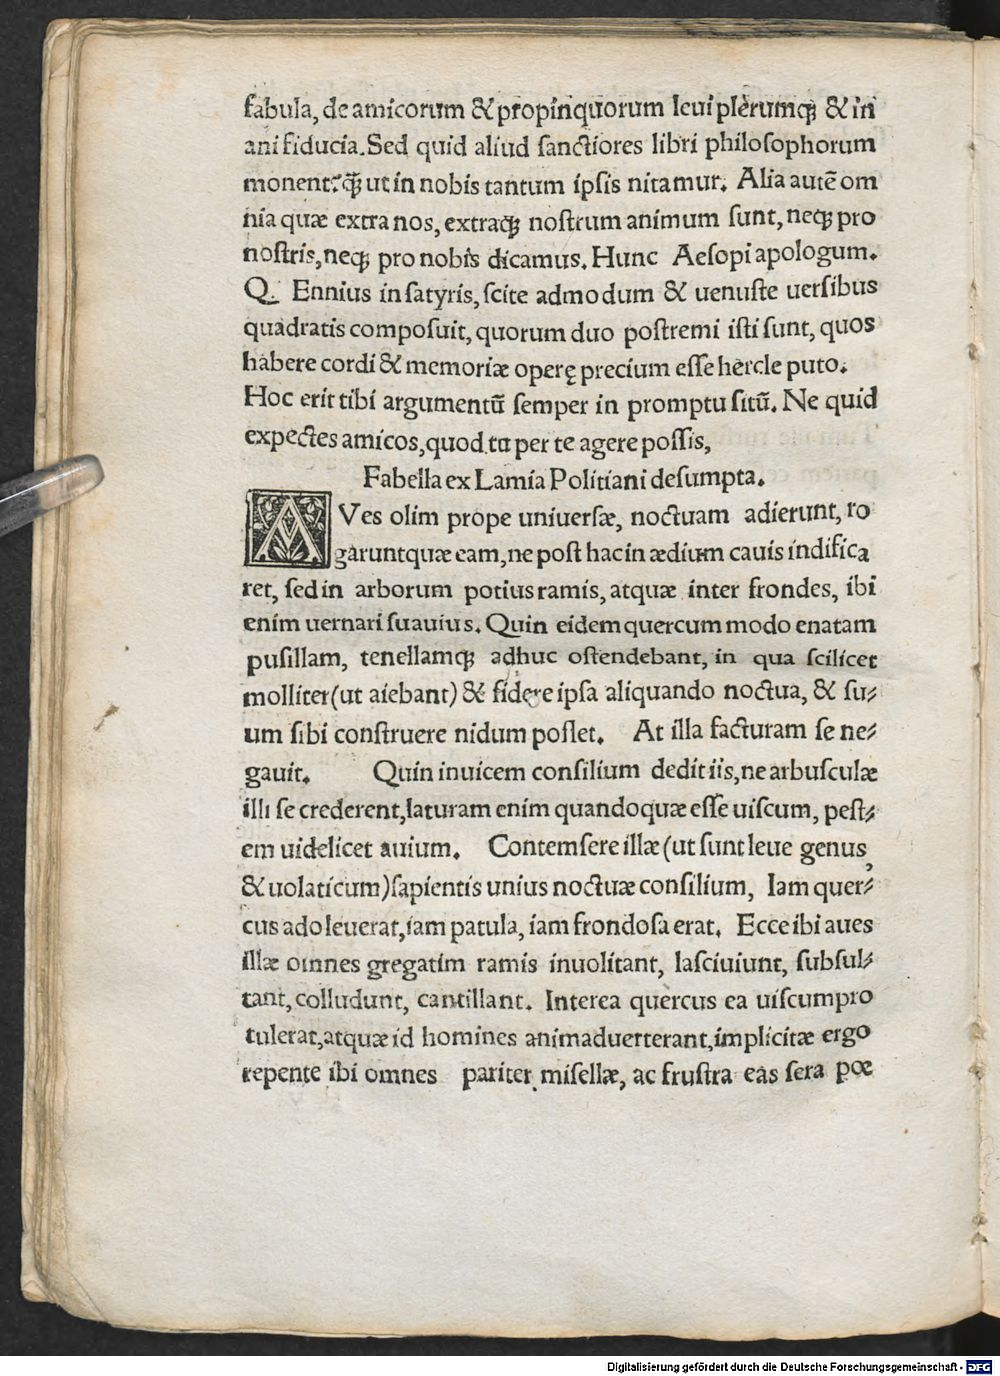 fabula, de amicorum & propinquorum leui plerumqꝫ & in
ani fiducia. Sed quid aliud ſanctiores libri philoſophorum
monent? qꝫ̃ ut in nobis tantum ipſis nitamur. Alia autẽ om
nia quæ extra nos, extraqꝫ noſtrum animum ſunt, neqꝫ pro
noſtris, neqꝫ pro nobis dicamus. Hunc Aeſopi apologum.
Q. Ennius in ſatyris, ſcite admodum & uenuſte uerſibus
quadratis compoſuit, quorum duo poſtremi iſti ſunt, quos
habere cordi & memoriæ operę precium eſſe hercle puto.
Hoc erit tibi argumentũ ſemper in promptu ſitũ. Ne quid
expectes amicos, quod tu per te agere poſſis,
Fabella ex Lamia Politiani deſumpta.
AVes olim prope uniuerſæ, noctuam adierunt, ro
garuntquæ eam, ne poſt hac in ædium cauis indifica
ret, ſed in arborum potius ramis, atquæ inter frondes, ibi
enim uernari ſuauius. Quin eidem quercum modo enatam
puſillam, tenellamqꝫ adhuc oſtendebant, in qua ſcilicet
molliter (ut aiebant) & ſidere ipſa aliquando noctua, & ſu⸗
um ſibi conſtruere nidum poſſet. At illa facturam ſe ne⸗
gauit. Quin inuicem conſilium dedit iis, ne arbuſculæ
illi ſe crederent, laturam enim quandoquæ eſſe uiſcum, peſt⸗
em uidelicet auium. Contemſere illæ (ut ſunt leue genus,
& uolaticum) ſapientis unius noctuæ conſilium, Iam quer⸗
cus adoleuerat, iam patula, iam frondoſa erat. Ecce ibi aues
illæ omnes gregatim ramis inuolitant, laſciuiunt, ſubſul⸗
tant, colludunt, cantillant. Interea quercus ea uiſcum pro
tulerat, atquæ id homines animaduerterant, implicitæ ergo
repente ibi omnes pariter miſellæ, ac fruſtra eas ſera pœ
Digitalisierung gefördert durch die Deutsche Forschungsgemeinschaft - DFG